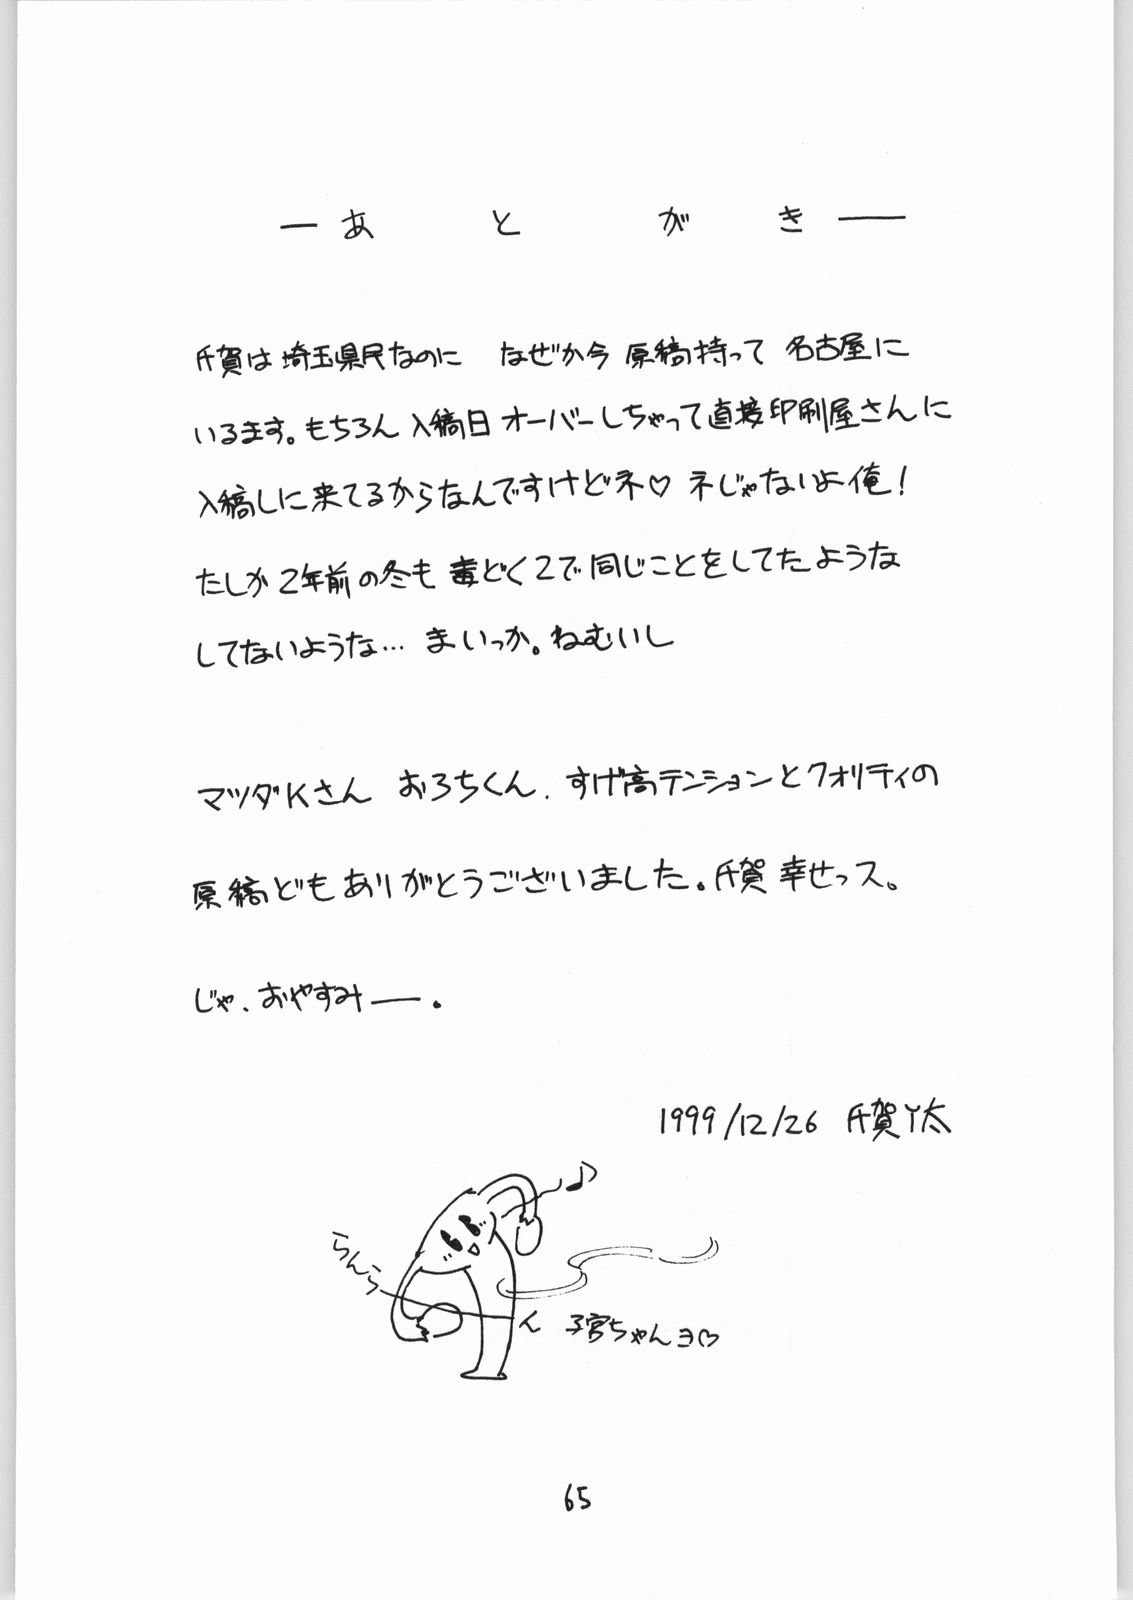 ― あとがき ―
氏賀は埼玉県民なのに なぜか今 原稿持って 名古屋に
います。もちろん 入稿日 オーバーしちゃって直接印刷屋さんに
入稿しに来てるからなんですけどネ♡ ネじゃないよ俺!
たしか2年前の冬も 毒どく2で同じことをしてたような
してないような… まいっか。ねむいし
マツダKさん おろちくん、すげ高テンションとクオリティの
原稿どもありがとうございました。氏賀 幸せっス。
じゃ、おやすみ―。
1999/12/26 氏賀Y太
♪
らんら
ん 子宮ちゃんヨ♡
65